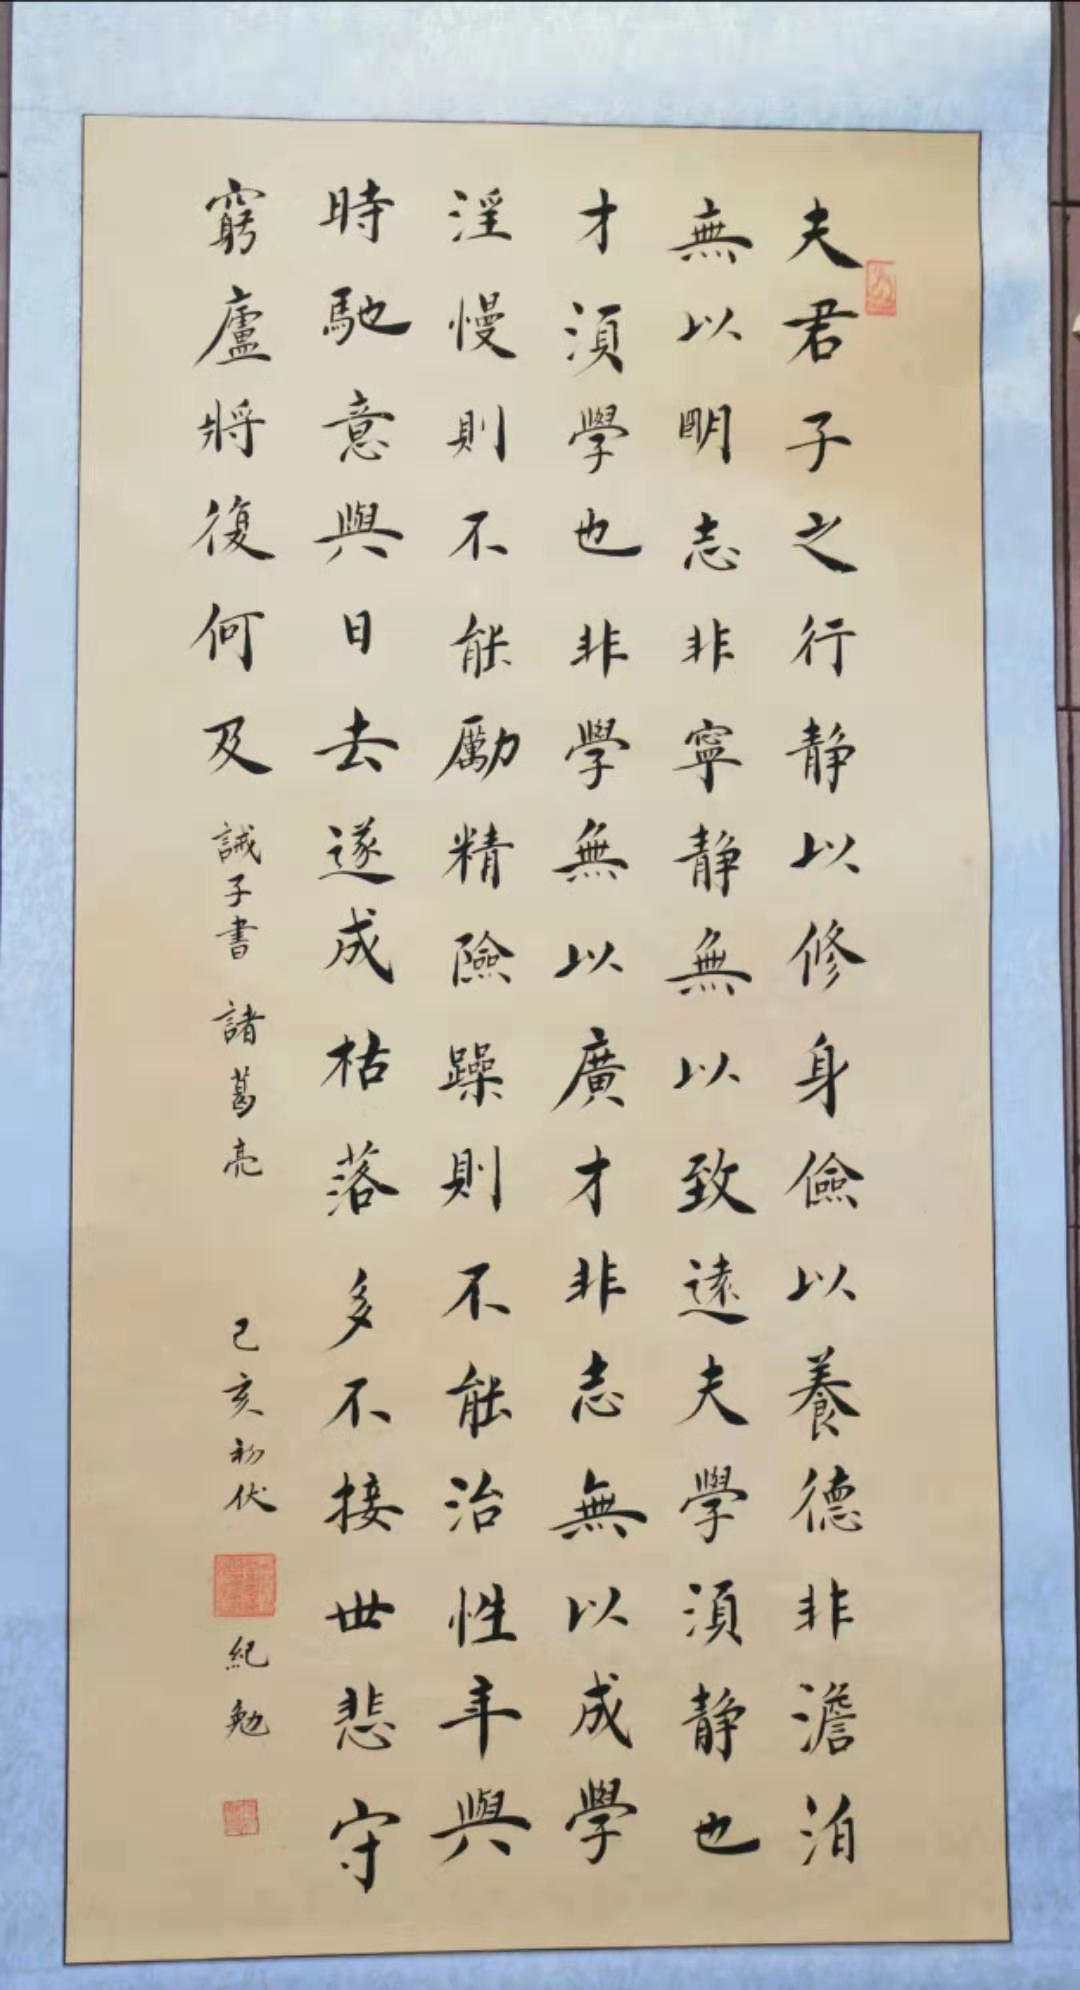 夫君子之行静以修身儉以養德非澹泊
無以明志非寧静無以致遠夫學須静也
才須學也非學無以廣才非志無以成學
淫慢則不能勵精險躁則不能治性年與
時馳意與日去遂成枯落多不接世悲守
窮廬將復何及
誡子書 諸葛亮
己亥初伏
紀勉